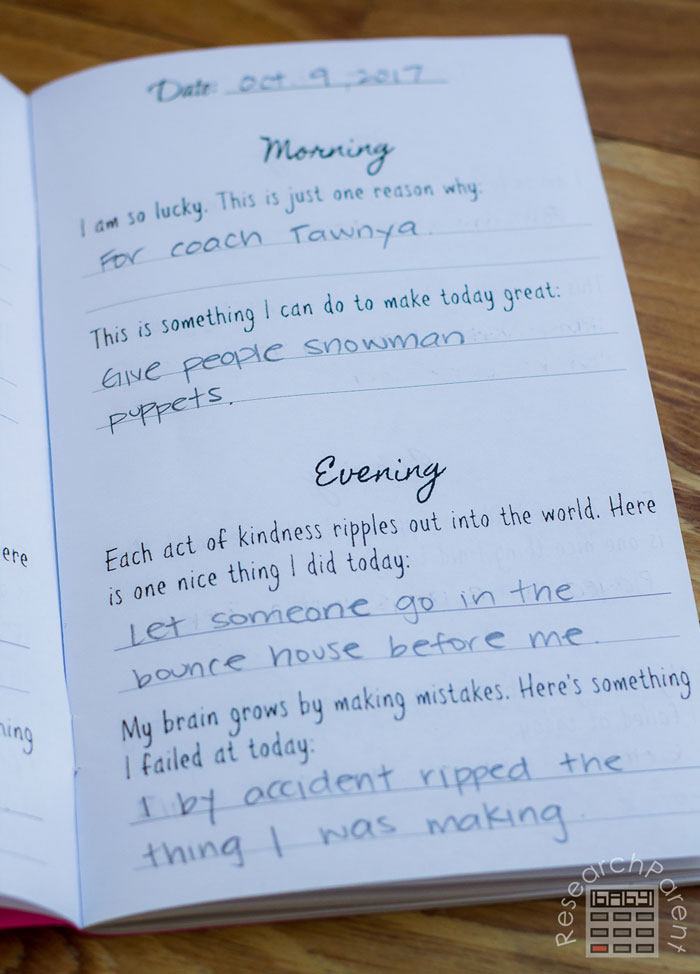 Date: Oct. 9, 2017
Morning
I am so lucky. This is just one reason why:
For coach Tawnya.
This is something I can do to make today great:
Give people snowman
puppets.
Evening
Each act of kindness ripples out into the world. Here
is one nice thing I did today:
Let someone go in the
bounce house before me.
My brain grows by making mistakes. Here's something
I failed at today:
I by accident ripped the
thing I was making
ere
hing
ResearchParent